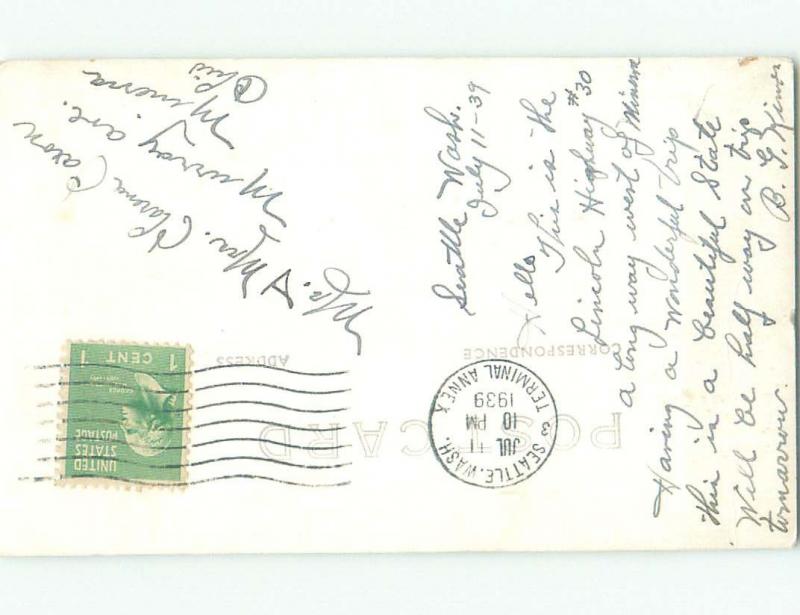 POST CARD
CORRESPONDENCE
ADDRESS
Seattle Wash.
July 11-39
Hello This is the
Lincoln Highway #30
a long way west of Minerva
Having a Wonderful trip
this is a beautiful State
Will be half way on trip
tomorrow. B. G.
SEATTLE, WASH. 3
JUL 11
10 PM
1939
TERMINAL ANNEX
UNITED
STATES
POSTAGE
1 CENT 1
Mr. & Mrs. Clarence
Murray ave.
Minerva
Ohio